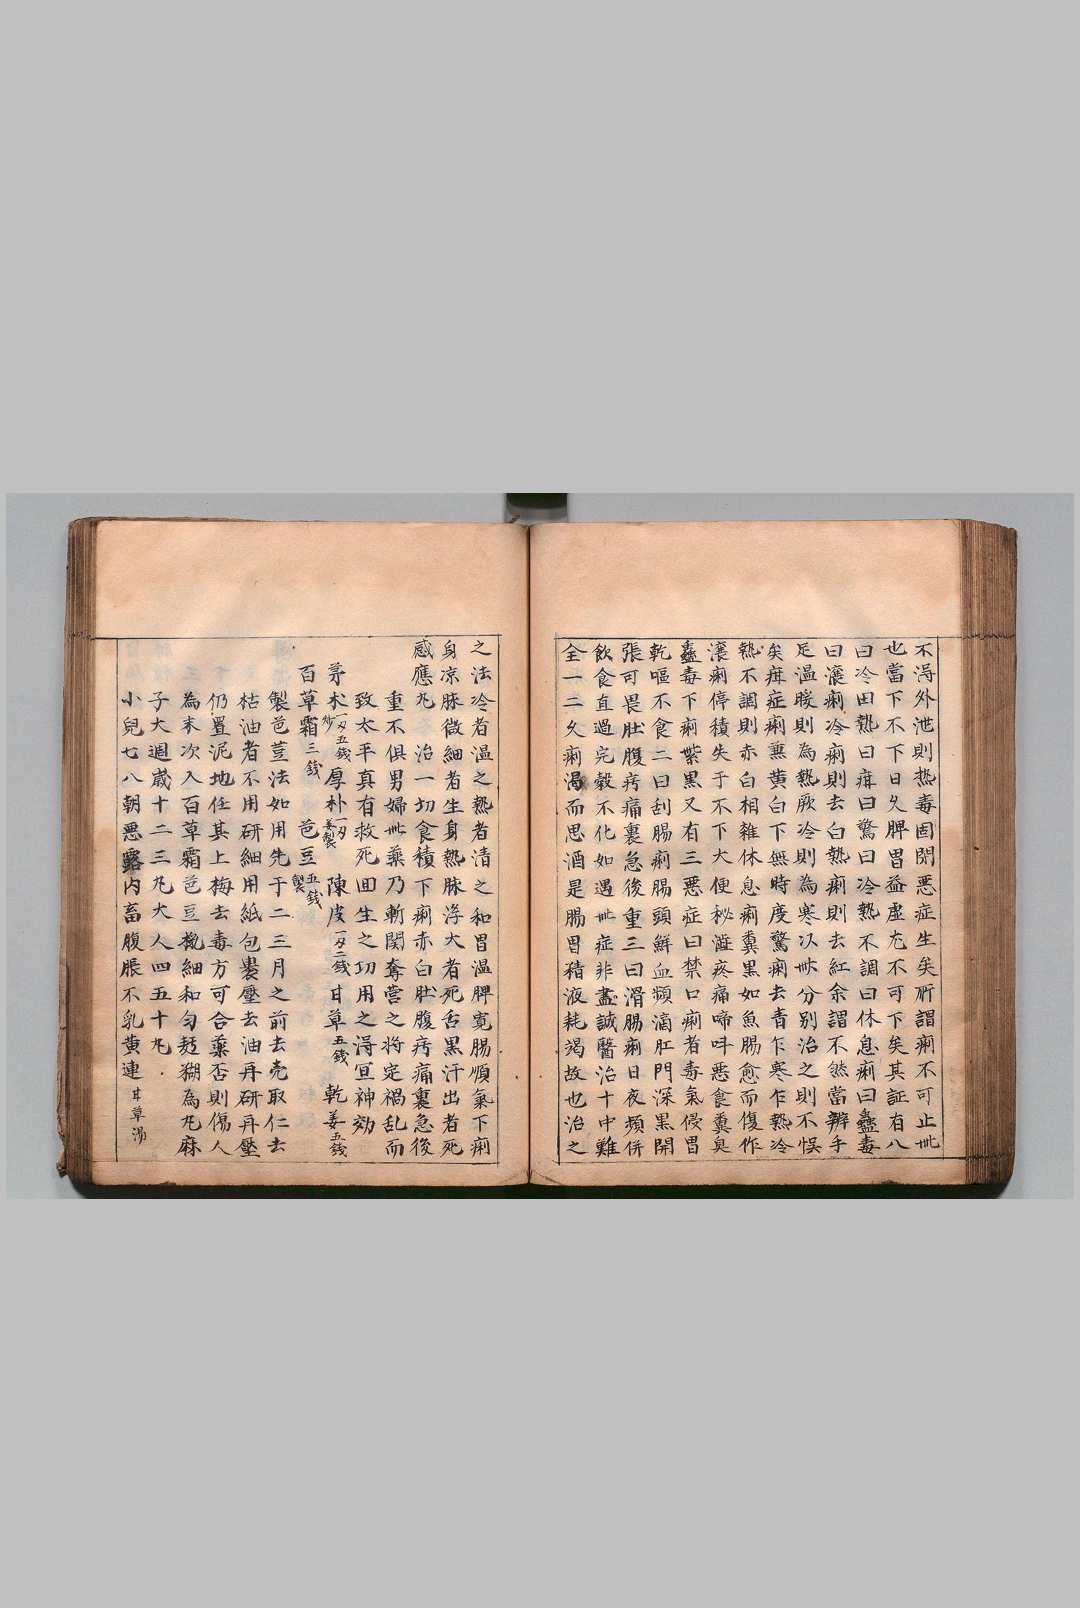 不淂外泄則热毒固閉悪症生矣所謂痢不可止㫮
也當下不下日久脾胃益虚尤不可下矣其証有八
曰冷曰熱曰疳曰驚曰冷熱不調曰休息痢曰蠱毒
曰瀼痢冷痢則去白熱痢則去紅余謂不然當辨手
足温暖則為熱厥冷則為寒以㫮分别治之則不悞
矣疳症痢兼黄白下無時度驚痢去青乍寒乍熱冷
熱不調則赤白相雜休息痢糞黒如魚腸愈而復作
瀼痢停積失于不下大便秘澁疼痛啼呌悪食糞臭
蠱毒下痢紫黒又有三悪症曰禁口痢者毒氣侵胃
乾嘔不食二曰刮腸痢腸頭鮮血頻滴肛門深黒開
張可畏肚腹疞痛裏急後重三曰滑腸痢日夜頻併
飲食直過完穀不化如遇㫮症非盡誠醫治十中難
全一二久痢渴而思酒是腸胃積液耗竭故也治之
之法冷者温之熱者清之和胃温脾寛腸順氣下痢
身凉脉微細者生身熱脉浮大者死舌黒汗出者死
感應丸 治一切食積下痢赤白肚腹疞痛裏急後
重不俱男婦㫮藥乃斬関奪营之将定禍乱而
致太平真有救死回生之功用之淂宜神効
茅术一刄五錢炒 厚朴一刄姜製 陳皮一刄二錢 甘草五錢 乾姜五錢
百草霜三錢 芭豆五錢製
製芭荳法如用先于二三月之前去壳取仁去
枯油者不用研細用紙包褁壓去油再研再壓
仍置泥地任其上梅去毒方可合藥否則傷人
為末次入百草霜芭豆𢬵細和匀麪糊為丸麻
子大週歲十二三丸大人四五十丸
小兒七八朝悪露内畜腹脹不乳黄連甘草湯